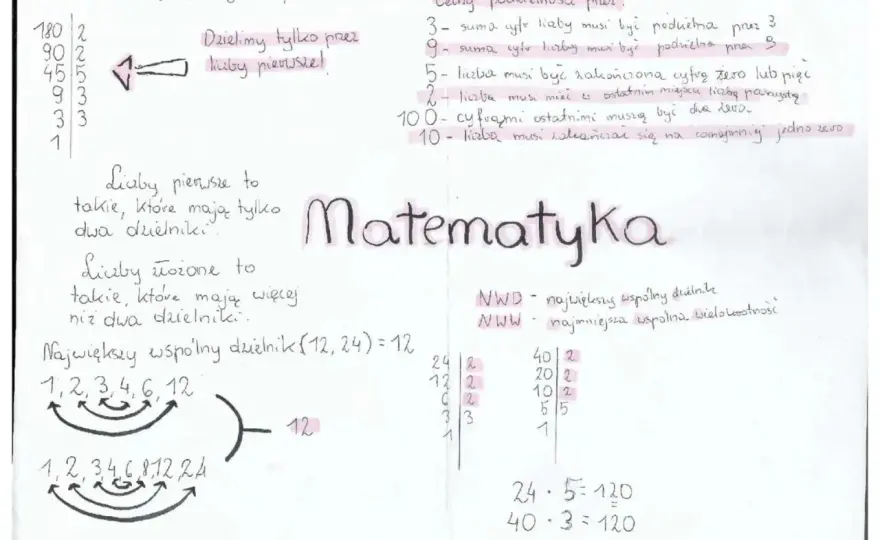 180 | 2
90 | 2
45 | 5
9 | 3
3 | 3
1
Dzielimy tylko przez
liczby pierwsze!
Cechy podzielności przez:
3 - suma cyfr liczby musi być podzielna przez 3
9 - suma cyfr liczby musi być podzielna przez 9
5 - liczba musi być zakończona cyfrą zero lub pięć
2 - liczba musi mieć w ostatnim miejscu liczbę parzystą
100 - cyframi ostatnimi muszą być dwa zera.
10 - liczba musi zakańczać się na conajmniej jedno zero
Liczby pierwsze to
takie, które mają tylko
dwa dzielniki.
Matematyka
Liczby złożone to
takie, które mają więcej
niż dwa dzielniki.
NWD - największy wspólny dzielnik
NWW - najmniejsza wspólna wielokrotność
Największy wspólny dzielnik (12, 24) = 12
1, 2, 3, 4, 6, 12
12
1, 2, 3, 4, 6, 8, 12, 24
24 | 2
12 | 2
6 | 2
3 | 3
1
40 | 2
20 | 2
10 | 2
5 | 5
1
24 · 5 = 120
40 · 3 = 120